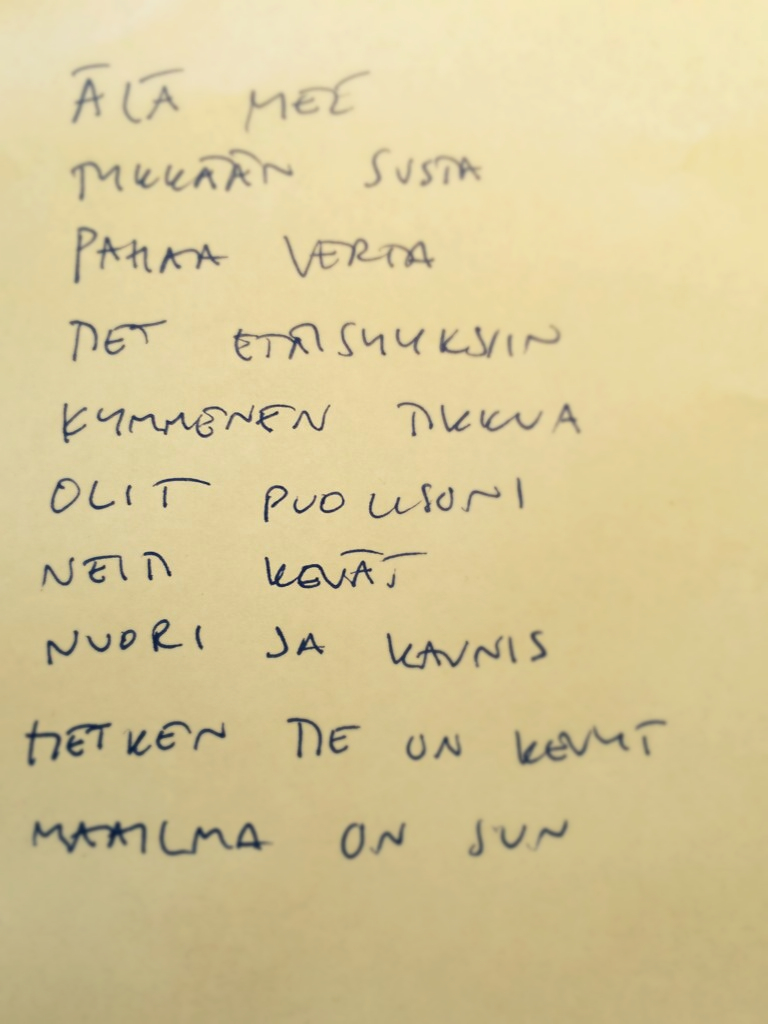 ÄLÄ MEE
TYKKÄÄN SUSTA
PAHAA VERTA
TIET ETÄISYYKSIIN
KYMMENEN TIKKUA
OLIT PUOLISONI
NEITI KEVÄT
NUORI JA KAUNIS
HETKEN TIE ON KEVYT
MAAILMA ON SUN